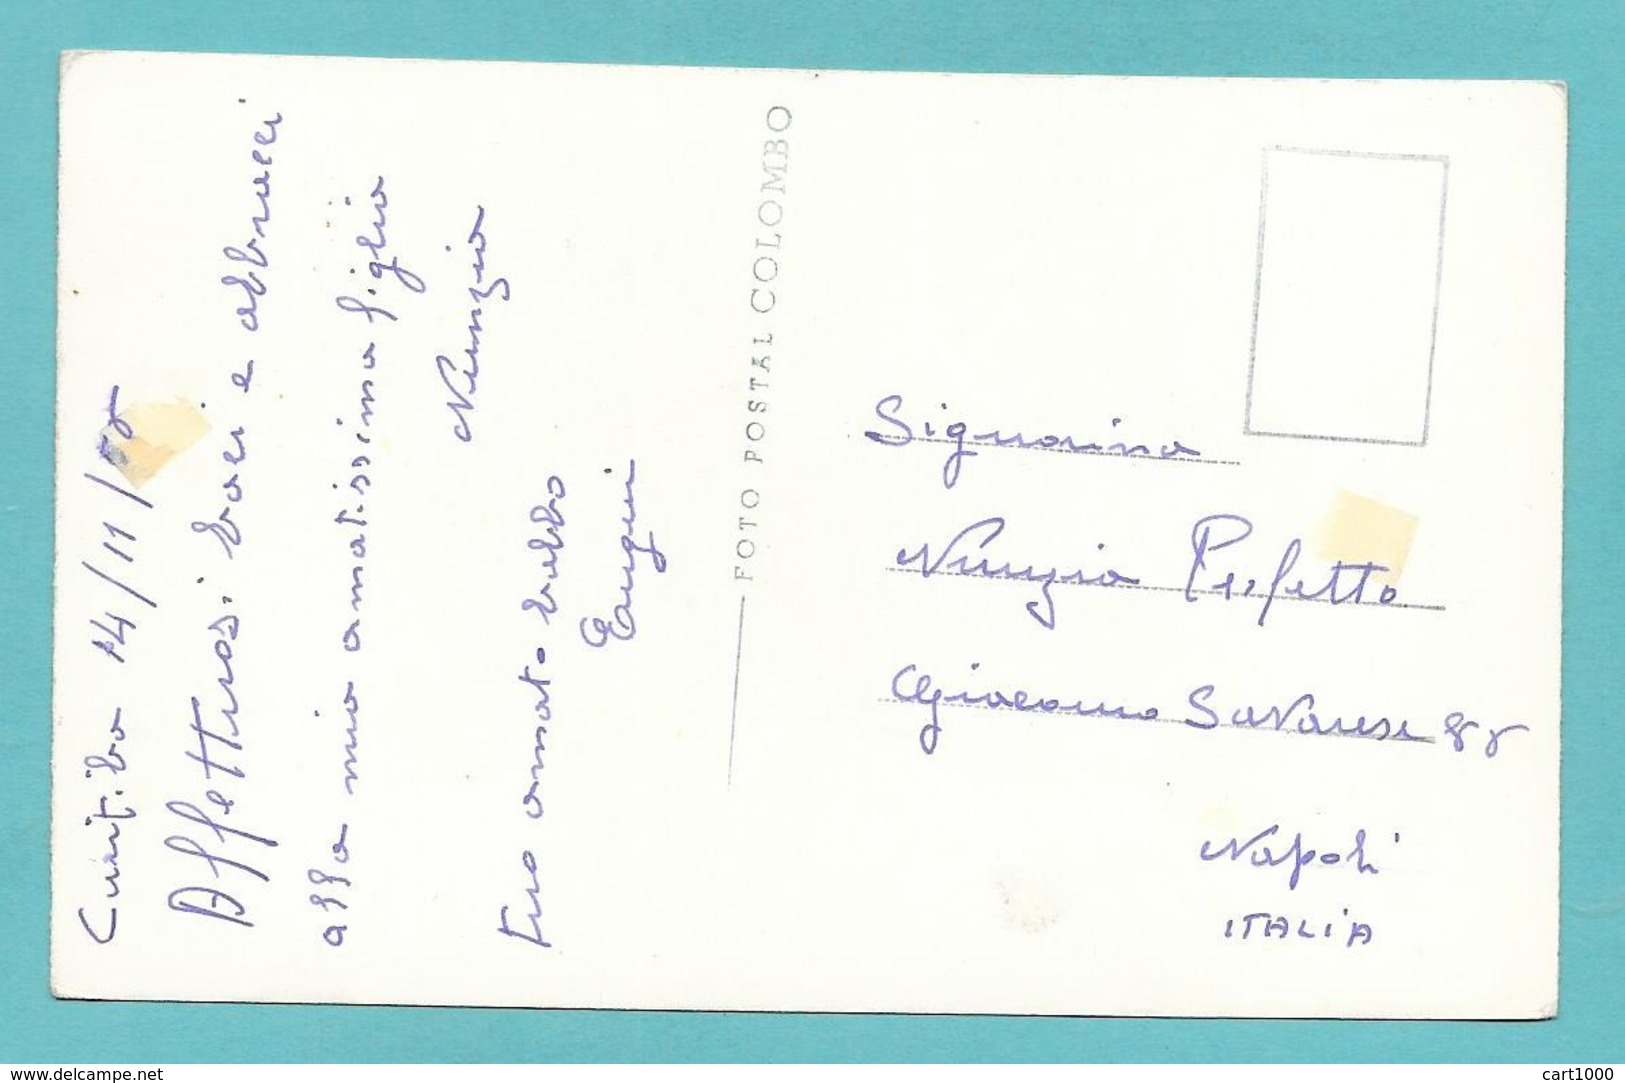 Curitiba 14/11/
Affettuosi baci e abbracci
alla mia amatissima figlia
Nunzia
tuo amato babbo
FOTO POSTAL COLOMBO
Signorina
Nunzia Perfetto
Giacomo Savarese
Napoli
ITALIA
www.delcampe.net
cart1000